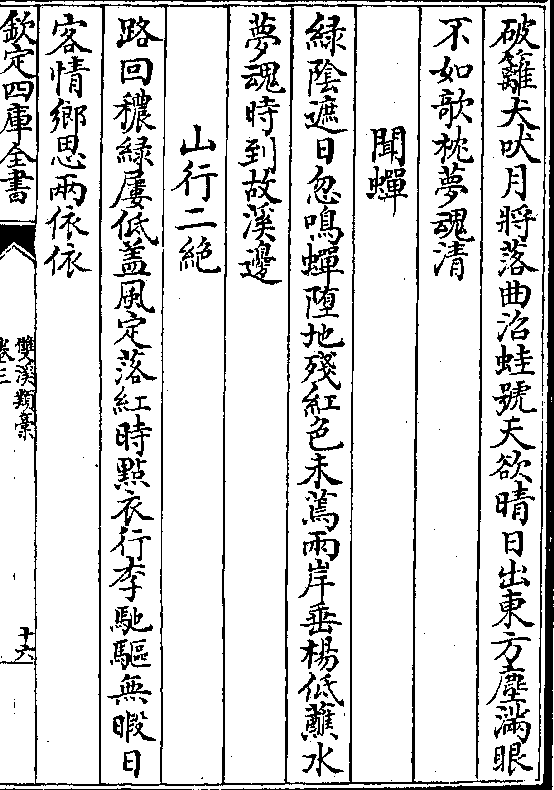 破籬犬吠月將落曲沼蛙號天欲晴日出東方塵滿眼
不如欹枕夢魂清
聞蟬
綠陰遮日忽鳴蟬堕地殘紅色未蔫兩岸垂楊低蘸水
夢魂時到故溪邊
山行二絶
路回穠綠屢低盖風定落紅時點衣行李馳驅無暇日
客情鄉思兩依依
欽定四庫全書
雙溪類藁
卷三
十六